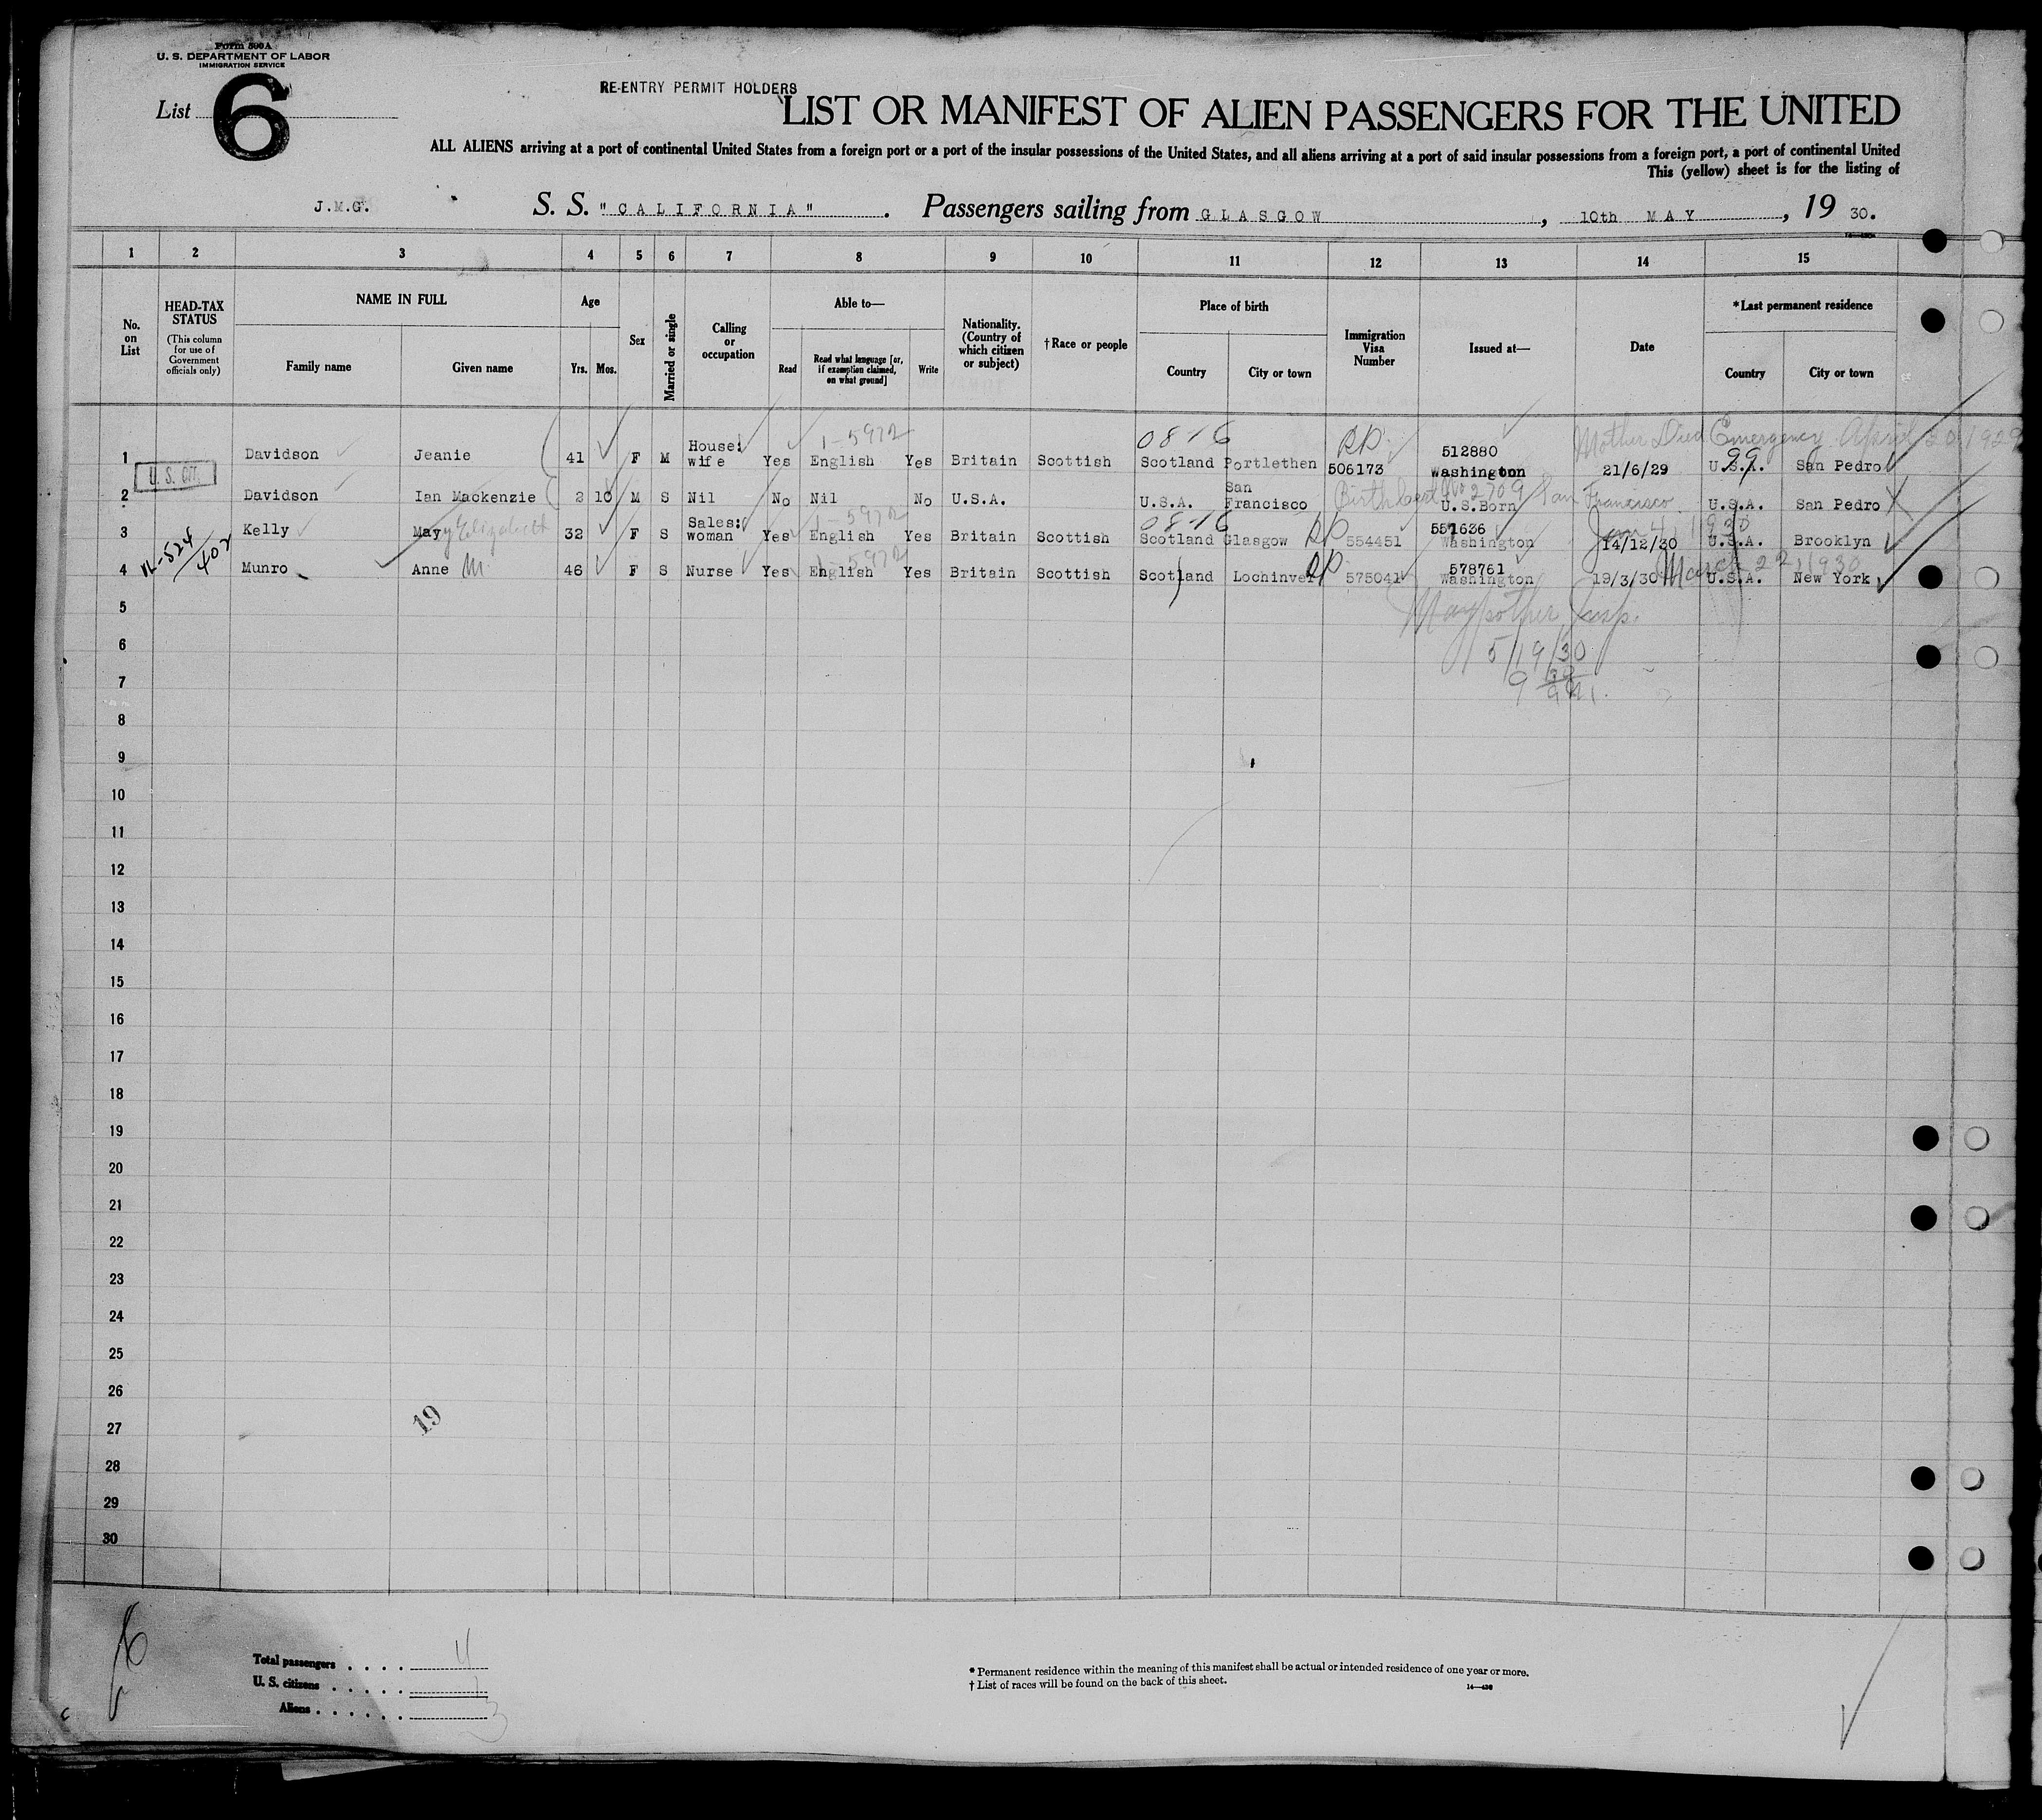 Form 500 A
U. S. DEPARTMENT OF LABOR
IMMIGRATION SERVICE
List 6
RE-ENTRY PERMIT HOLDERS
LIST OR MANIFEST OF ALIEN PASSENGERS FOR THE UNITED
ALL ALIENS arriving at a port of continental United States from a foreign port or a port of the insular possessions of the United States, and all aliens arriving at a port of said insular possessions from a foreign port, a port of continental United
This (yellow) sheet is for the listing of
J.M.G. S. S. "CALIFORNIA". Passengers sailing from GLASGOW, 10th MAY, 19 30.
1 2 3 4 5 6 7 8 9 10 11 12 13 14 15
No. on List
HEAD-TAX STATUS
(This column for use of Government officials only)
NAME IN FULL
Family name Given name
Age
Yrs. Mos.
Sex
Married or single
Calling or occupation
Able to—
Read Read what language [or, if exemption claimed, on what ground] Write
Nationality. (Country of which citizen or subject)
†Race or people
Place of birth
Country City or town
Immigration Visa Number
Issued at—
Date
*Last permanent residence
Country City or town
0816 RP Mother Died Emergency April 20, 1929
1-5972
1 Davidson Jeanie 41 F M House: wife Yes English Yes Britain Scottish Scotland Portlethen 506173 512880 Washington 21/6/29 U.S.A. 99 San Pedro
U. S. CIT.
2 Davidson Ian Mackenzie 2 10 M S Nil No Nil No U.S.A. U.S.A. San Francisco U.S.Born U.S.A. San Pedro
Birth Cert No 2709 San Francisco
1-5972 0816 RP Jan 4, 1930
3 Kelly May Elizabeth 32 F S Sales: woman Yes English Yes Britain Scottish Scotland Glasgow 554451 551636 Washington 14/12/30 U.S.A. Brooklyn
1-5972 RP March 22, 1930
4 Munro Anne M 46 F S Nurse Yes English Yes Britain Scottish Scotland Lochinver 575041 578761 Washington 19/3/30 U.S.A. New York
5
Insp.
6
5/19/30
7
8
9
10
11
12
13
14
15
16
17
18
19
20
21
22
23
24
25
26
27
19
28
29
30
Total passengers . . . . 4
U. S. citizens . . . . . 1
Aliens . . . . . . 3
* Permanent residence within the meaning of this manifest shall be actual or intended residence of one year or more.
† List of races will be found on the back of this sheet.